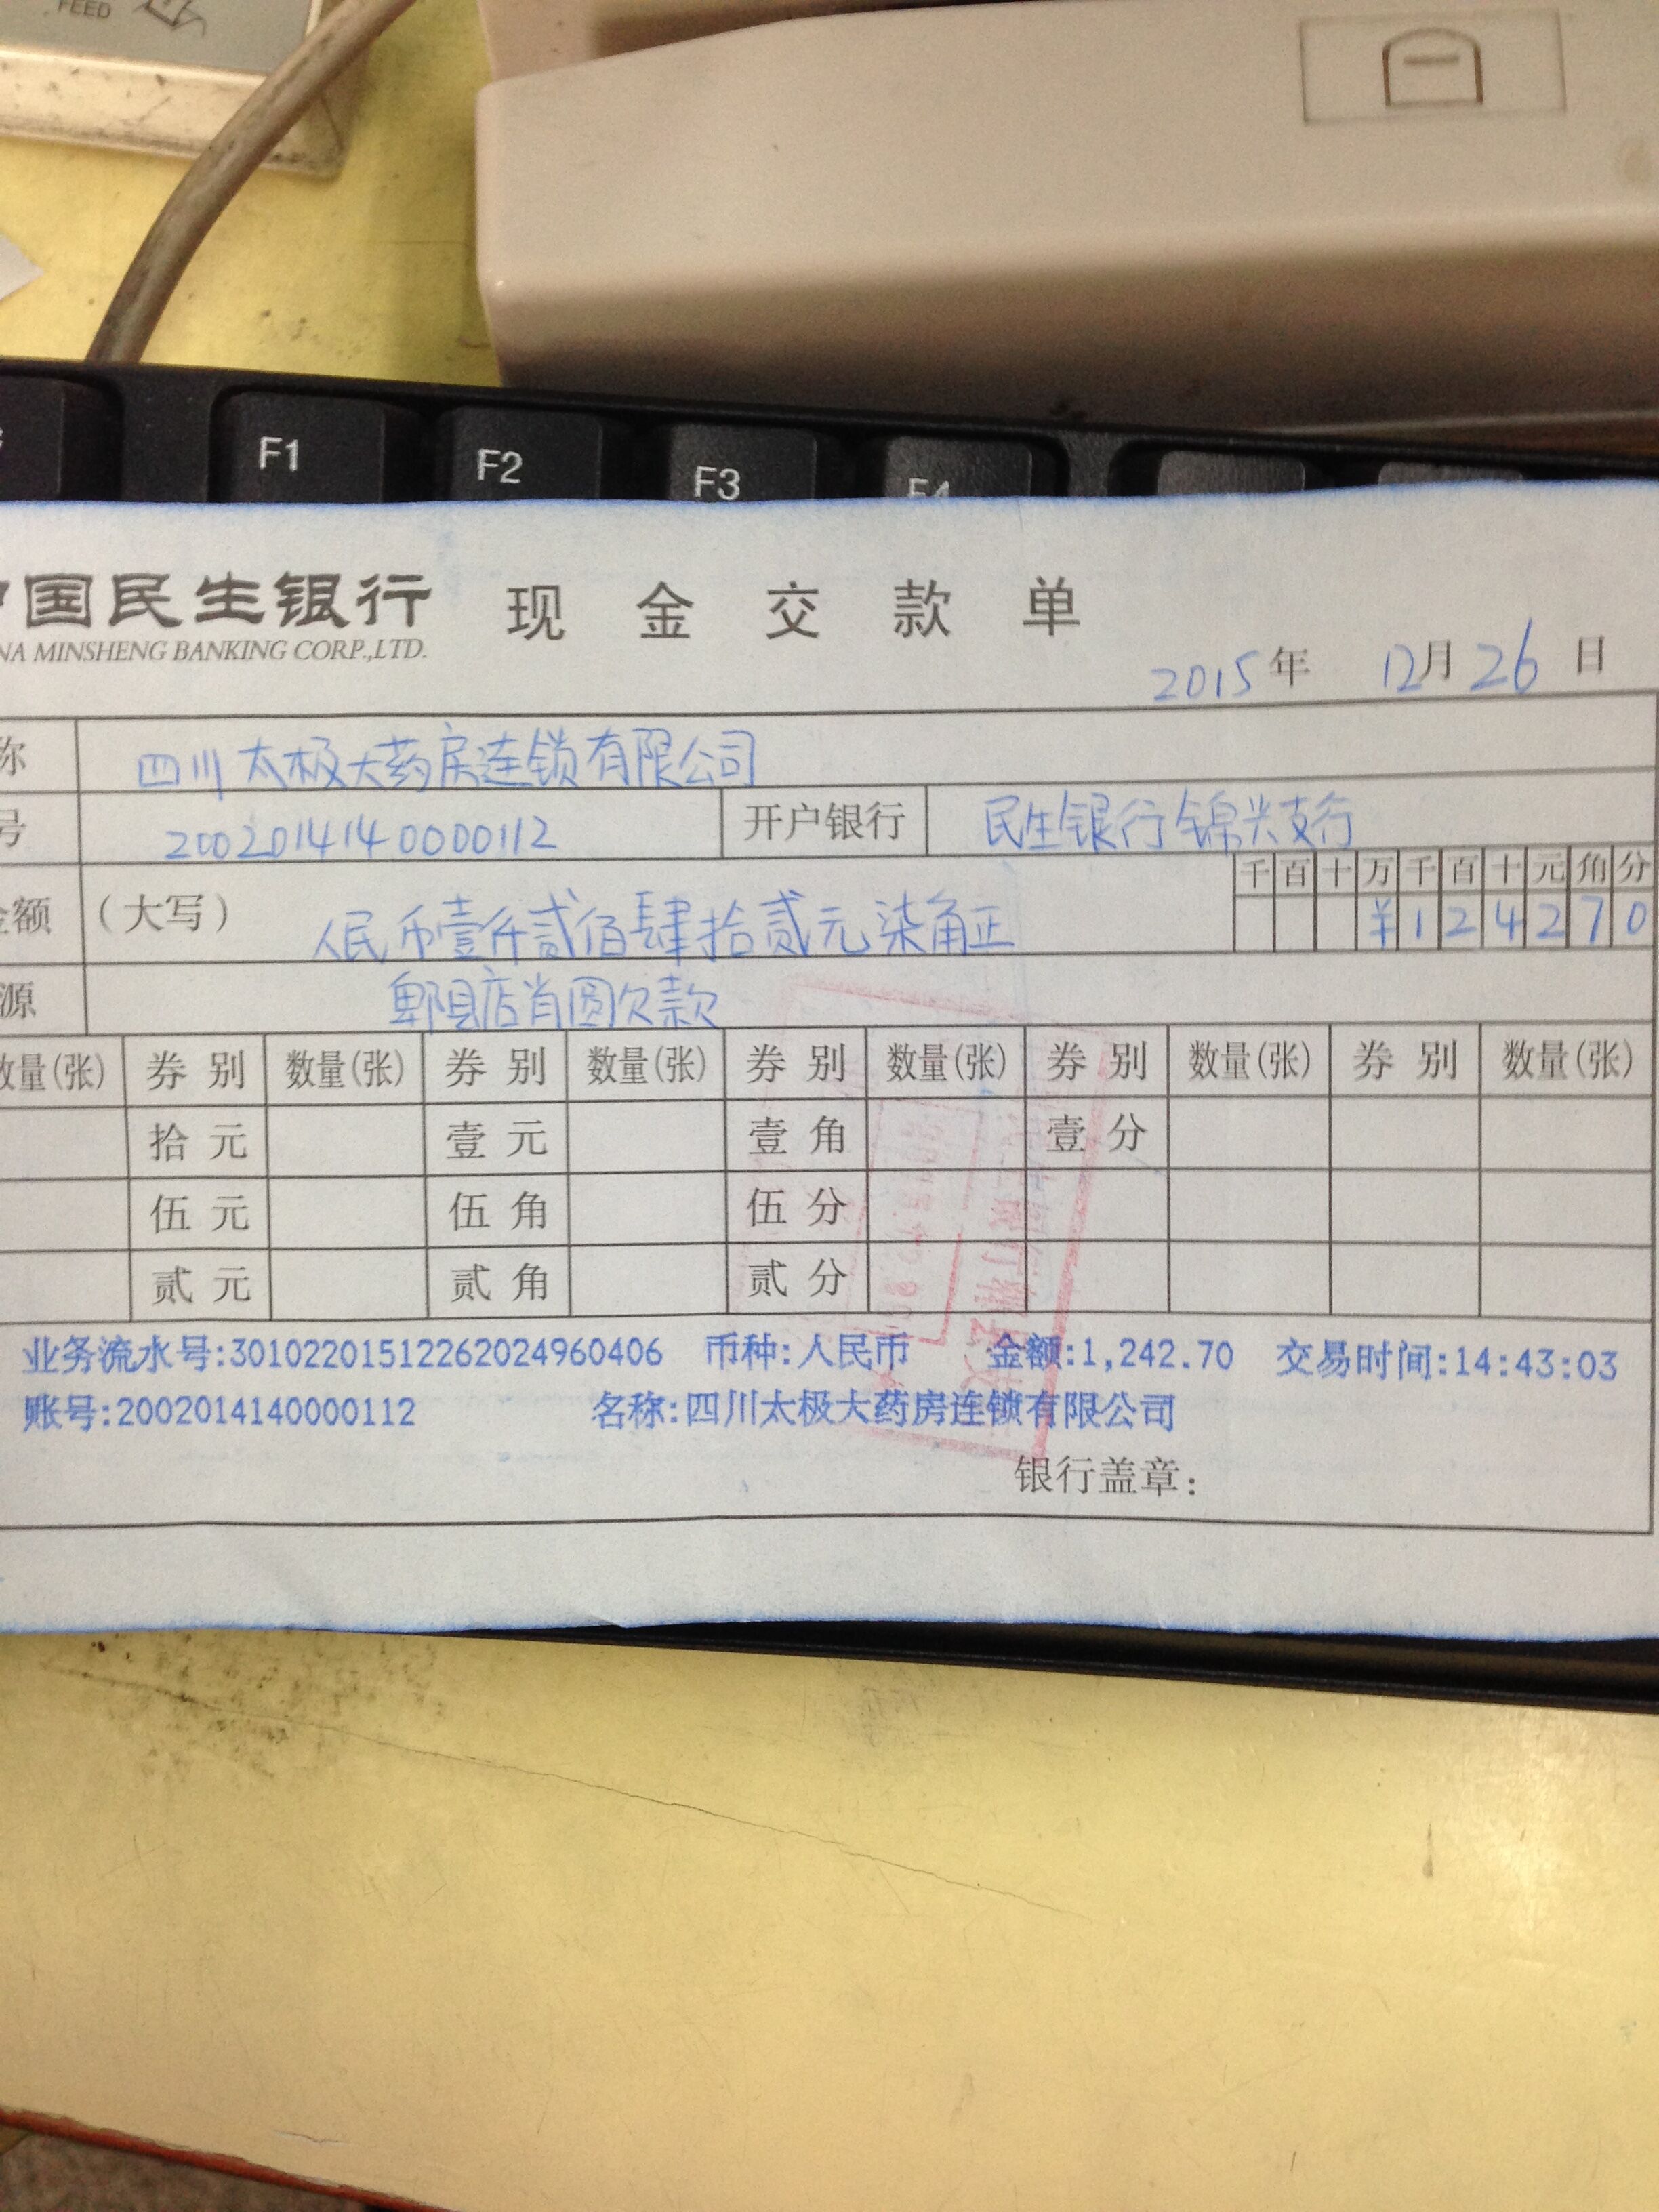 FEED
F1 F2 F3 F4
中国民生银行 现金交款单
NA MINSHENG BANKING CORP.,LTD.
2015年 12月26日
称 四川太极大药房连锁有限公司
号 2002014140000112 开户银行 民生银行锦兴支行
千 百 十 万 千 百 十 元 角 分
金额 (大写) 人民币壹仟贰佰肆拾贰元柒角正 ¥ 1 2 4 2 7 0
源 郫县店肖圆欠款
数量(张) 券别 数量(张) 券别 数量(张) 券别 数量(张) 券别 数量(张) 券别 数量(张)
拾元 壹元 壹角 壹分
伍元 伍角 伍分
贰元 贰角 贰分
业务流水号:30102201512262024960406 币种:人民币 金额:1,242.70 交易时间:14:43:03
账号:2002014140000112 名称:四川太极大药房连锁有限公司
银行盖章: